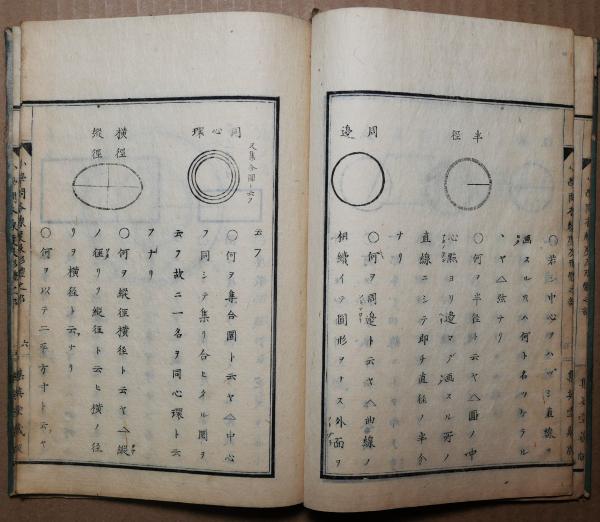 半径
周邊
〇若シ中心ヲハヅシ直線ヲ
画スルルハ何ト名ヅケラル
ヽヤ△弦ナリ
〇何ヲ半径ト云ヤ△圓ノ中
心點ヨリ邊マデ画スル所ノ
直線ニシテ即チ直径ノ半分
ナリ
〇何ヲ周邊ト云ヤ△曲線ノ
相續イテ圓形ヲナス外面ヲ
同心環
又集合圓ト云フ
横径
縦径
云フ
〇何ヲ集合圓ト云ヤ△中心
ヲ同シテ集リ合ヒタル圓ヲ
云フ故ニ一名ヲ同心環ト云
フナリ
〇何ヲ縦徑横径ト云ヤ△縦
ノ徑リヲ縦徑ト云ヒ横ノ徑
リヲ横径ト云ナリ
〇何ヲ以テ二平方寸ト云ヤ
六